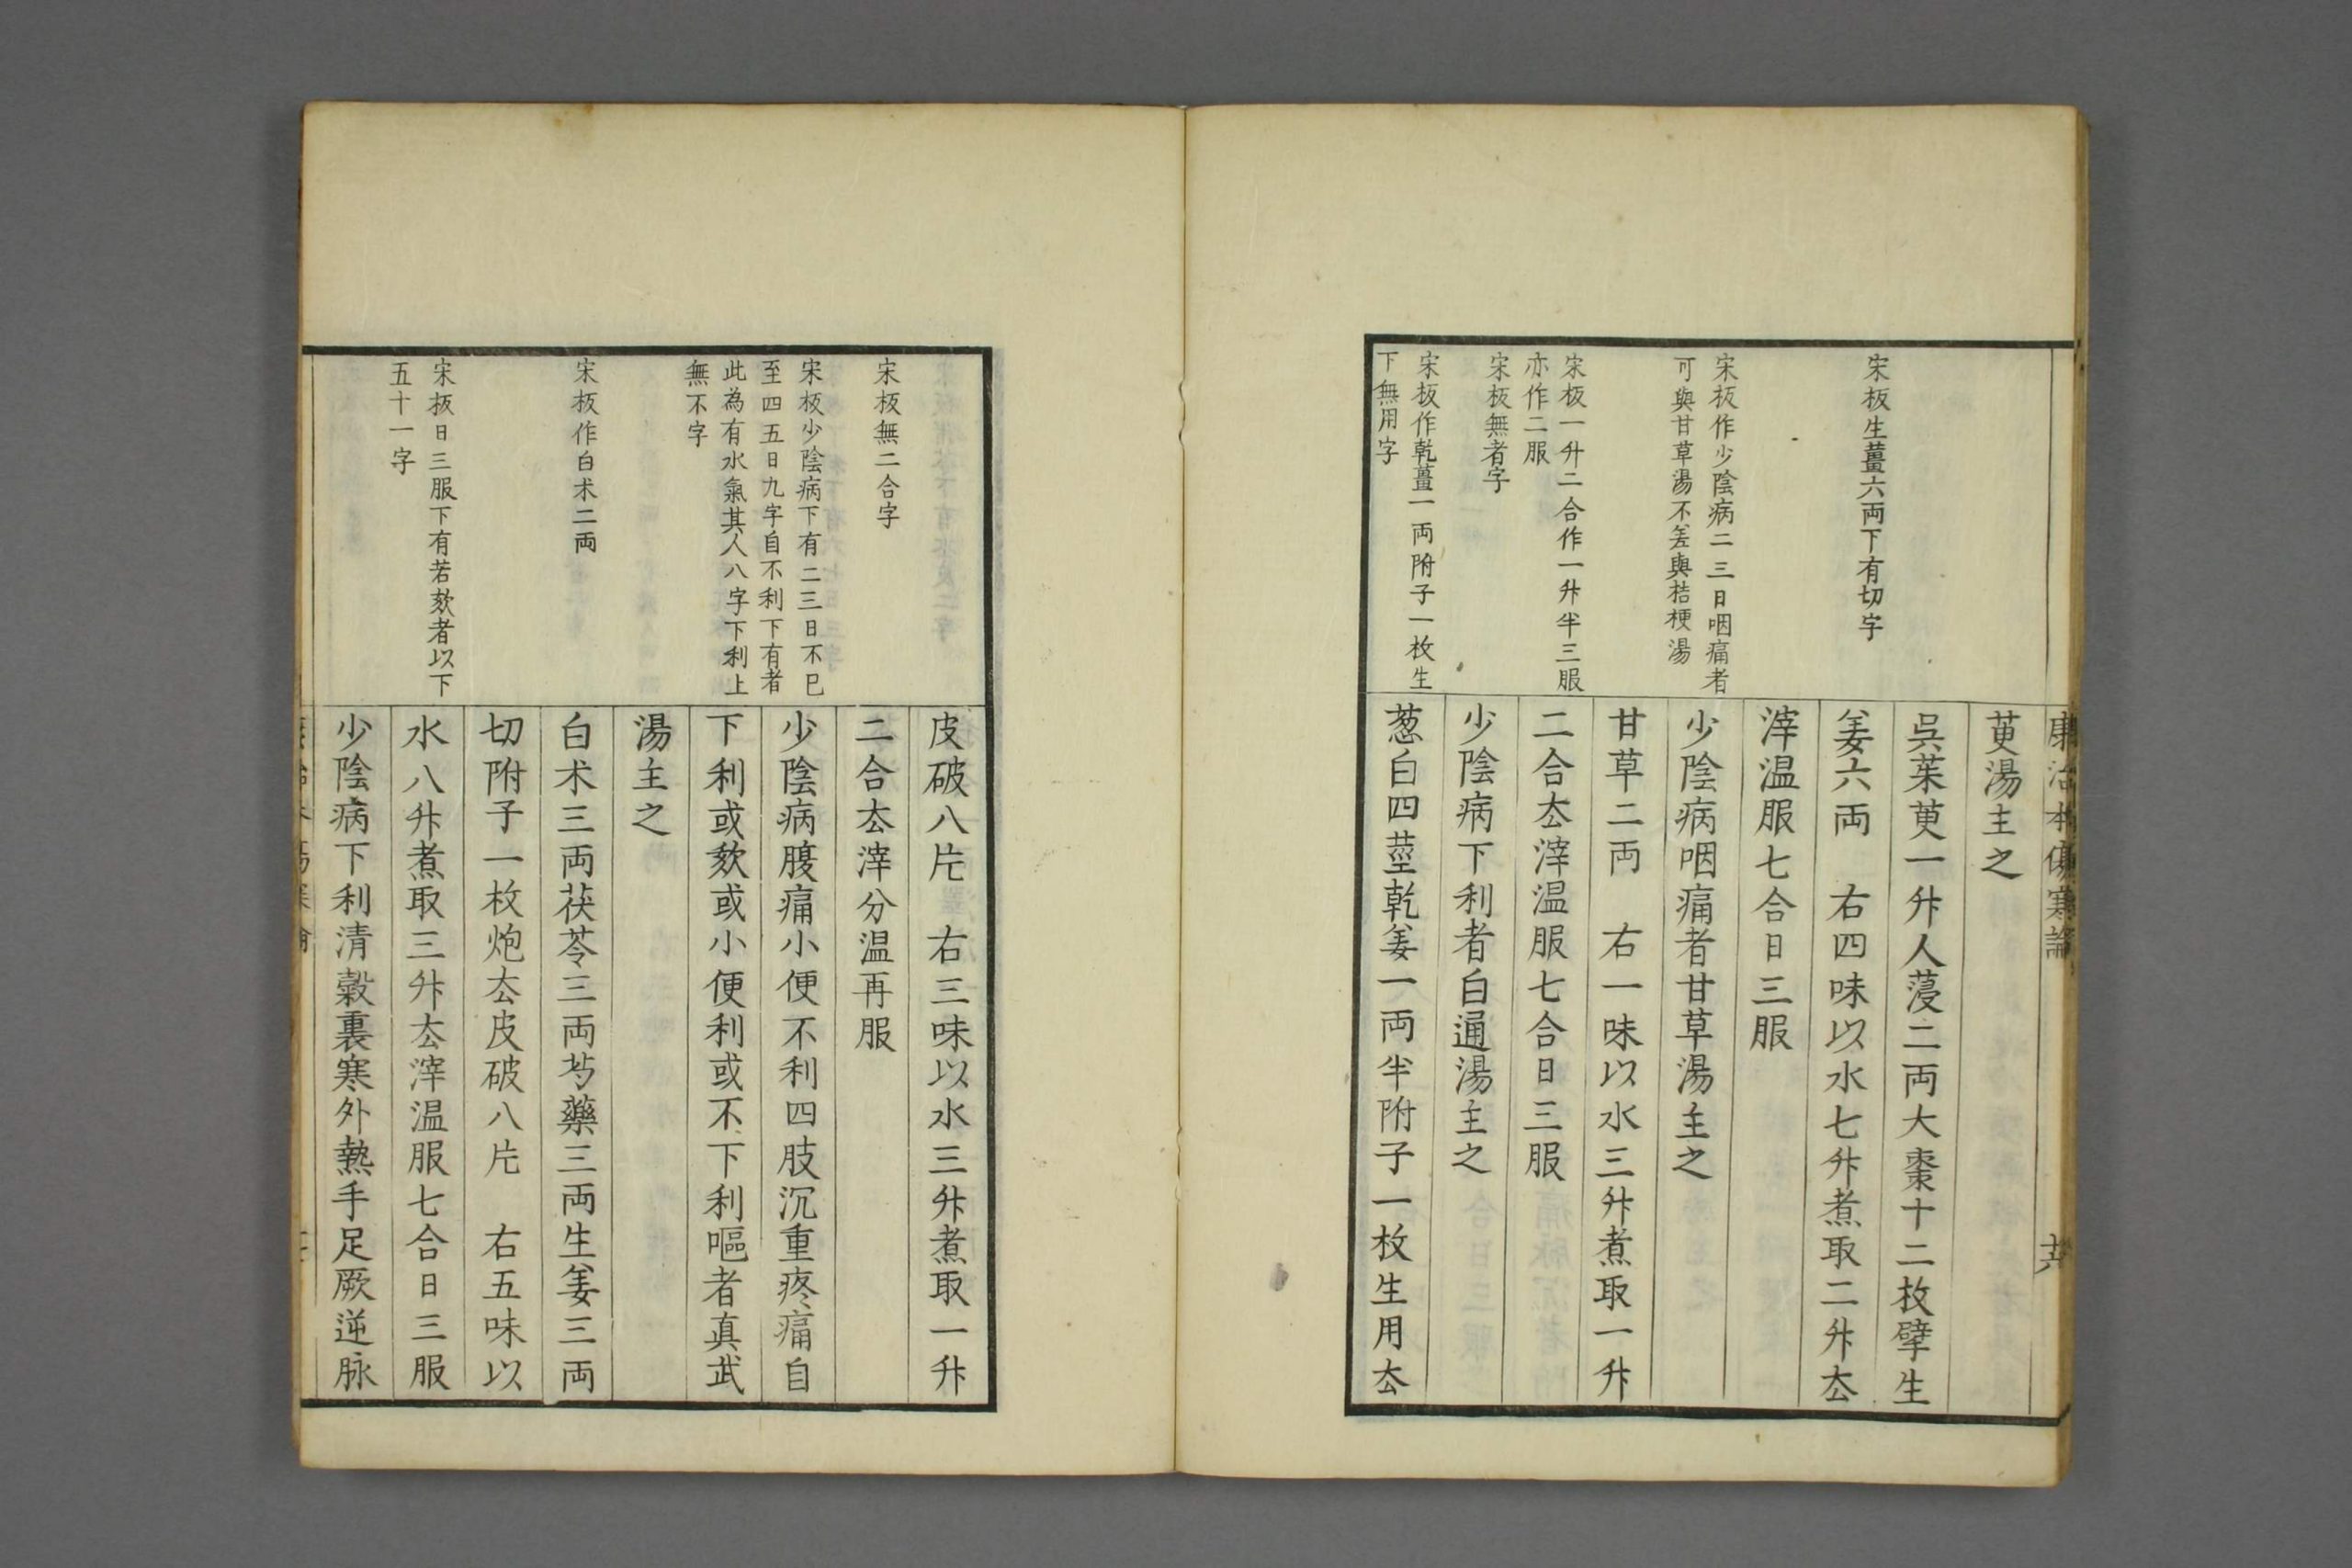 康治本傷寒論
十六
宋板生薑六両下有切字
宋板作少陰病二三日咽痛者
可與甘草湯不差與桔梗湯
宋板一升二合作一升半三服
亦作二服
宋板無者字
宋板作乾薑一両附子一枚生
下無用字
萸湯主之
呉茱萸一升人薓二両大棗十二枚擘生
姜六両　右四味以水七升煮取二升去
滓温服七合日三服
少陰病咽痛者甘草湯主之
甘草二両　右一味以水三升煮取一升
二合去滓温服七合日三服
少陰病下利者白通湯主之
葱白四莖乾姜一両半附子一枚生用去
宋板無二合字
宋板少陰病下有二三日不已
至四五日九字自不利下有者
此為有水氣其人八字下利上
無不字
宋板作白朮二両
宋板日三服下有若欬者以下
五十一字
皮破八片　右三味以水三升煮取一升
二合去滓分温再服
少陰病腹痛小便不利四肢沉重疼痛自
下利或欬或小便利或不下利嘔者真武
湯主之
白朮三両茯苓三両芍藥三両生姜三両
切附子一枚炮去皮破八片　右五味以
水八升煮取三升去滓温服七合日三服
少陰病下利清穀裏寒外熱手足厥逆脉